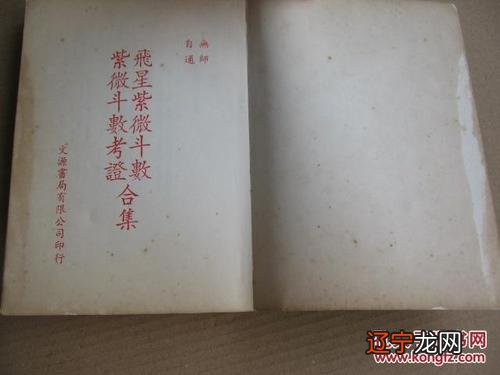 無師
自通
飛星紫微斗數
紫微斗數考證
合集
文源書局有限公司印行
辽宁龙网
www.kongfz.com